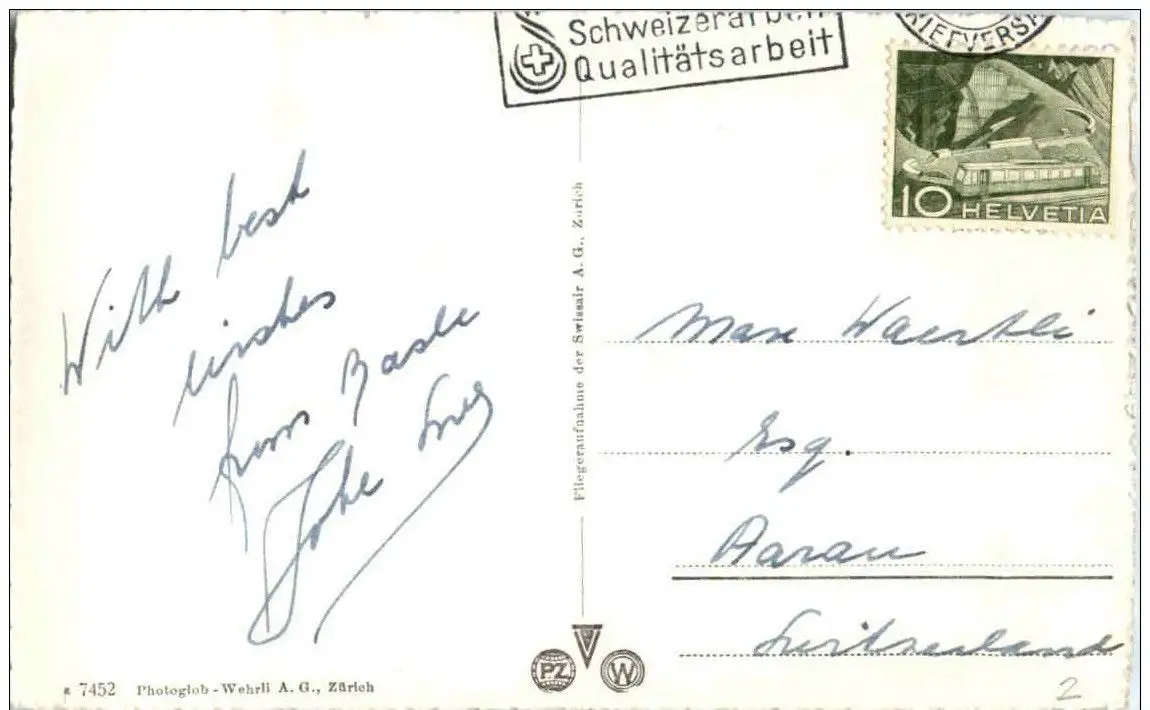 Schweizerarbeit
Qualitätsarbeit
10 HELVETIA
With best
wishes
from Basle
Fliegeraufnahme der Swissair A. G., Zürich
Max
Esq.
Aarau
Switzerland
PZ W
7452 Photoglob-Wehrli A. G., Zürich
2